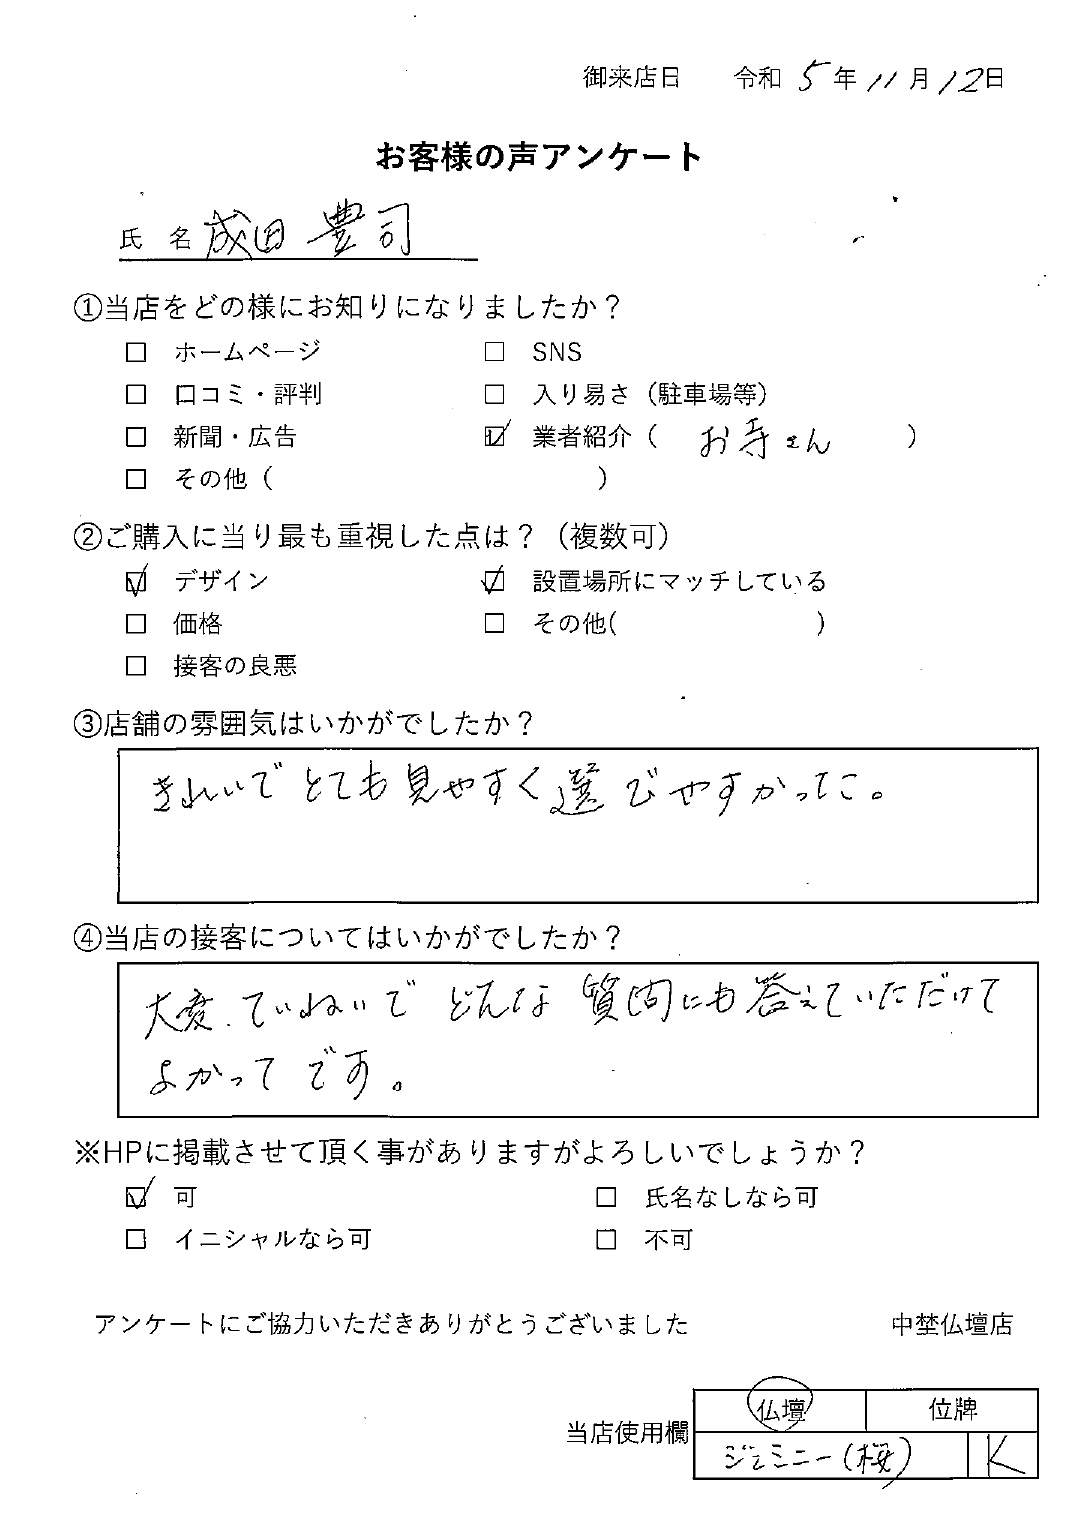 御来店日 令和 5 年 11 月 12 日
お客様の声アンケート
氏 名 成田 豊司
①当店をどの様にお知りになりましたか?
□ ホームページ □ SNS
□ 口コミ・評判 □ 入り易さ(駐車場等)
□ 新聞・広告 ☑ 業者紹介( お寺さん )
□ その他( )
②ご購入に当り最も重視した点は?(複数可)
☑ デザイン ☑ 設置場所にマッチしている
□ 価格 □ その他( )
□ 接客の良悪
③店舗の雰囲気はいかがでしたか?
きれいで とても 見やすく 選びやすかった。
④当店の接客についてはいかがでしたか?
大変、ていねいで どんな 質問にも 答えていただけて
よかってです。
※HPに掲載させて頂く事がありますがよろしいでしょうか?
☑ 可 □ 氏名なしなら可
□ イニシャルなら可 □ 不可
アンケートにご協力いただきありがとうございました 中埜仏壇店
当店使用欄 仏壇 位牌
ジェミニー(桜) K